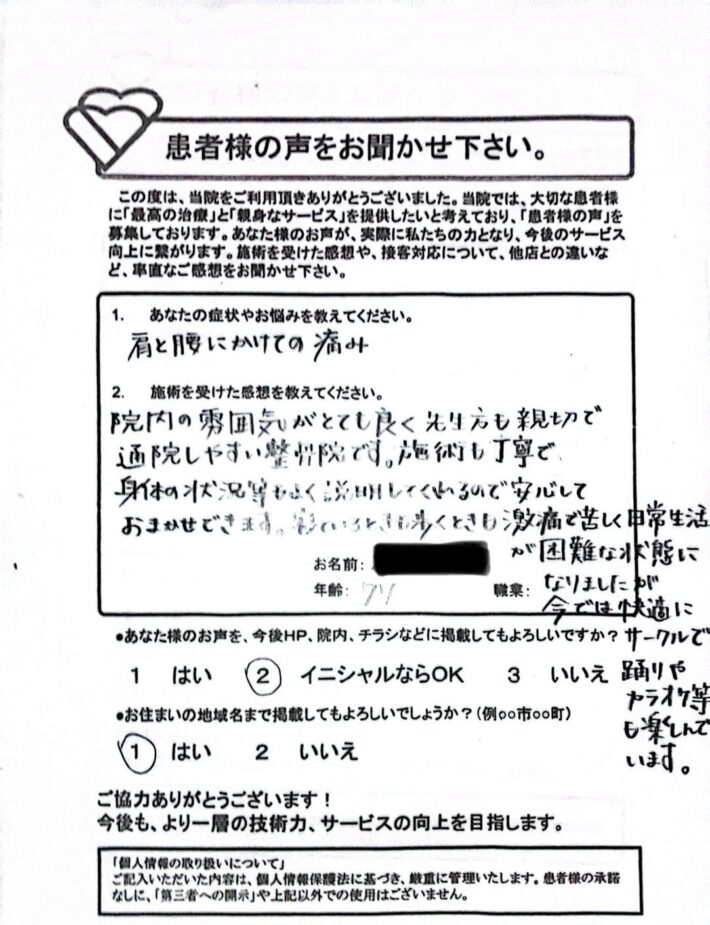 患者様の声をお聞かせ下さい。
この度は、当院をご利用頂きありがとうございました。当院では、大切な患者様
に「最高の治療」と「親身なサービス」を提供したいと考えており、「患者様の声」を
募集しております。あなた様のお声が、実際に私たちの力となり、今後のサービス
向上に繋がります。施術を受けた感想や、接客対応について、他店との違いな
ど、率直なご感想をお聞かせ下さい。
1. あなたの症状やお悩みを教えてください。
肩と腰にかけての痛み
2. 施術を受けた感想を教えてください。
院内の雰囲気がとても良く先生方も親切で
通院しやすい整骨院です。施術も丁寧で、
身体の状況等もよく説明してくれるので安心して
おまかせできます。寝ているときも歩くときも激痛で苦しく日常生活
が困難な状態に
なりましたが
今では快適に
サークルで
踊りや
カラオケ等
も楽しんで
います。
お名前:
年齢: 職業:
●あなた様のお声を、今後HP、院内、チラシなどに掲載してもよろしいですか?
1 はい 2 イニシャルならOK 3 いいえ
●お住まいの地域名まで掲載してもよろしいでしょうか?(例○○市○○町)
1 はい 2 いいえ
ご協力ありがとうございます!
今後も、より一層の技術力、サービスの向上を目指します。
「個人情報の取り扱いについて」
ご記入いただいた内容は、個人情報保護法に基づき、厳重に管理いたします。患者様の承諾
なしに、「第三者への開示」や上記以外での使用はございません。